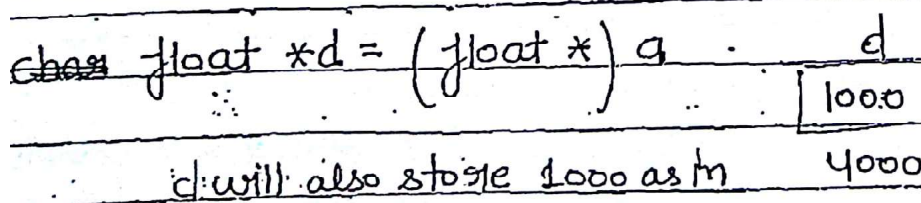 float *d = (float *) a . d
1000
d will also store 1000 as in 4000